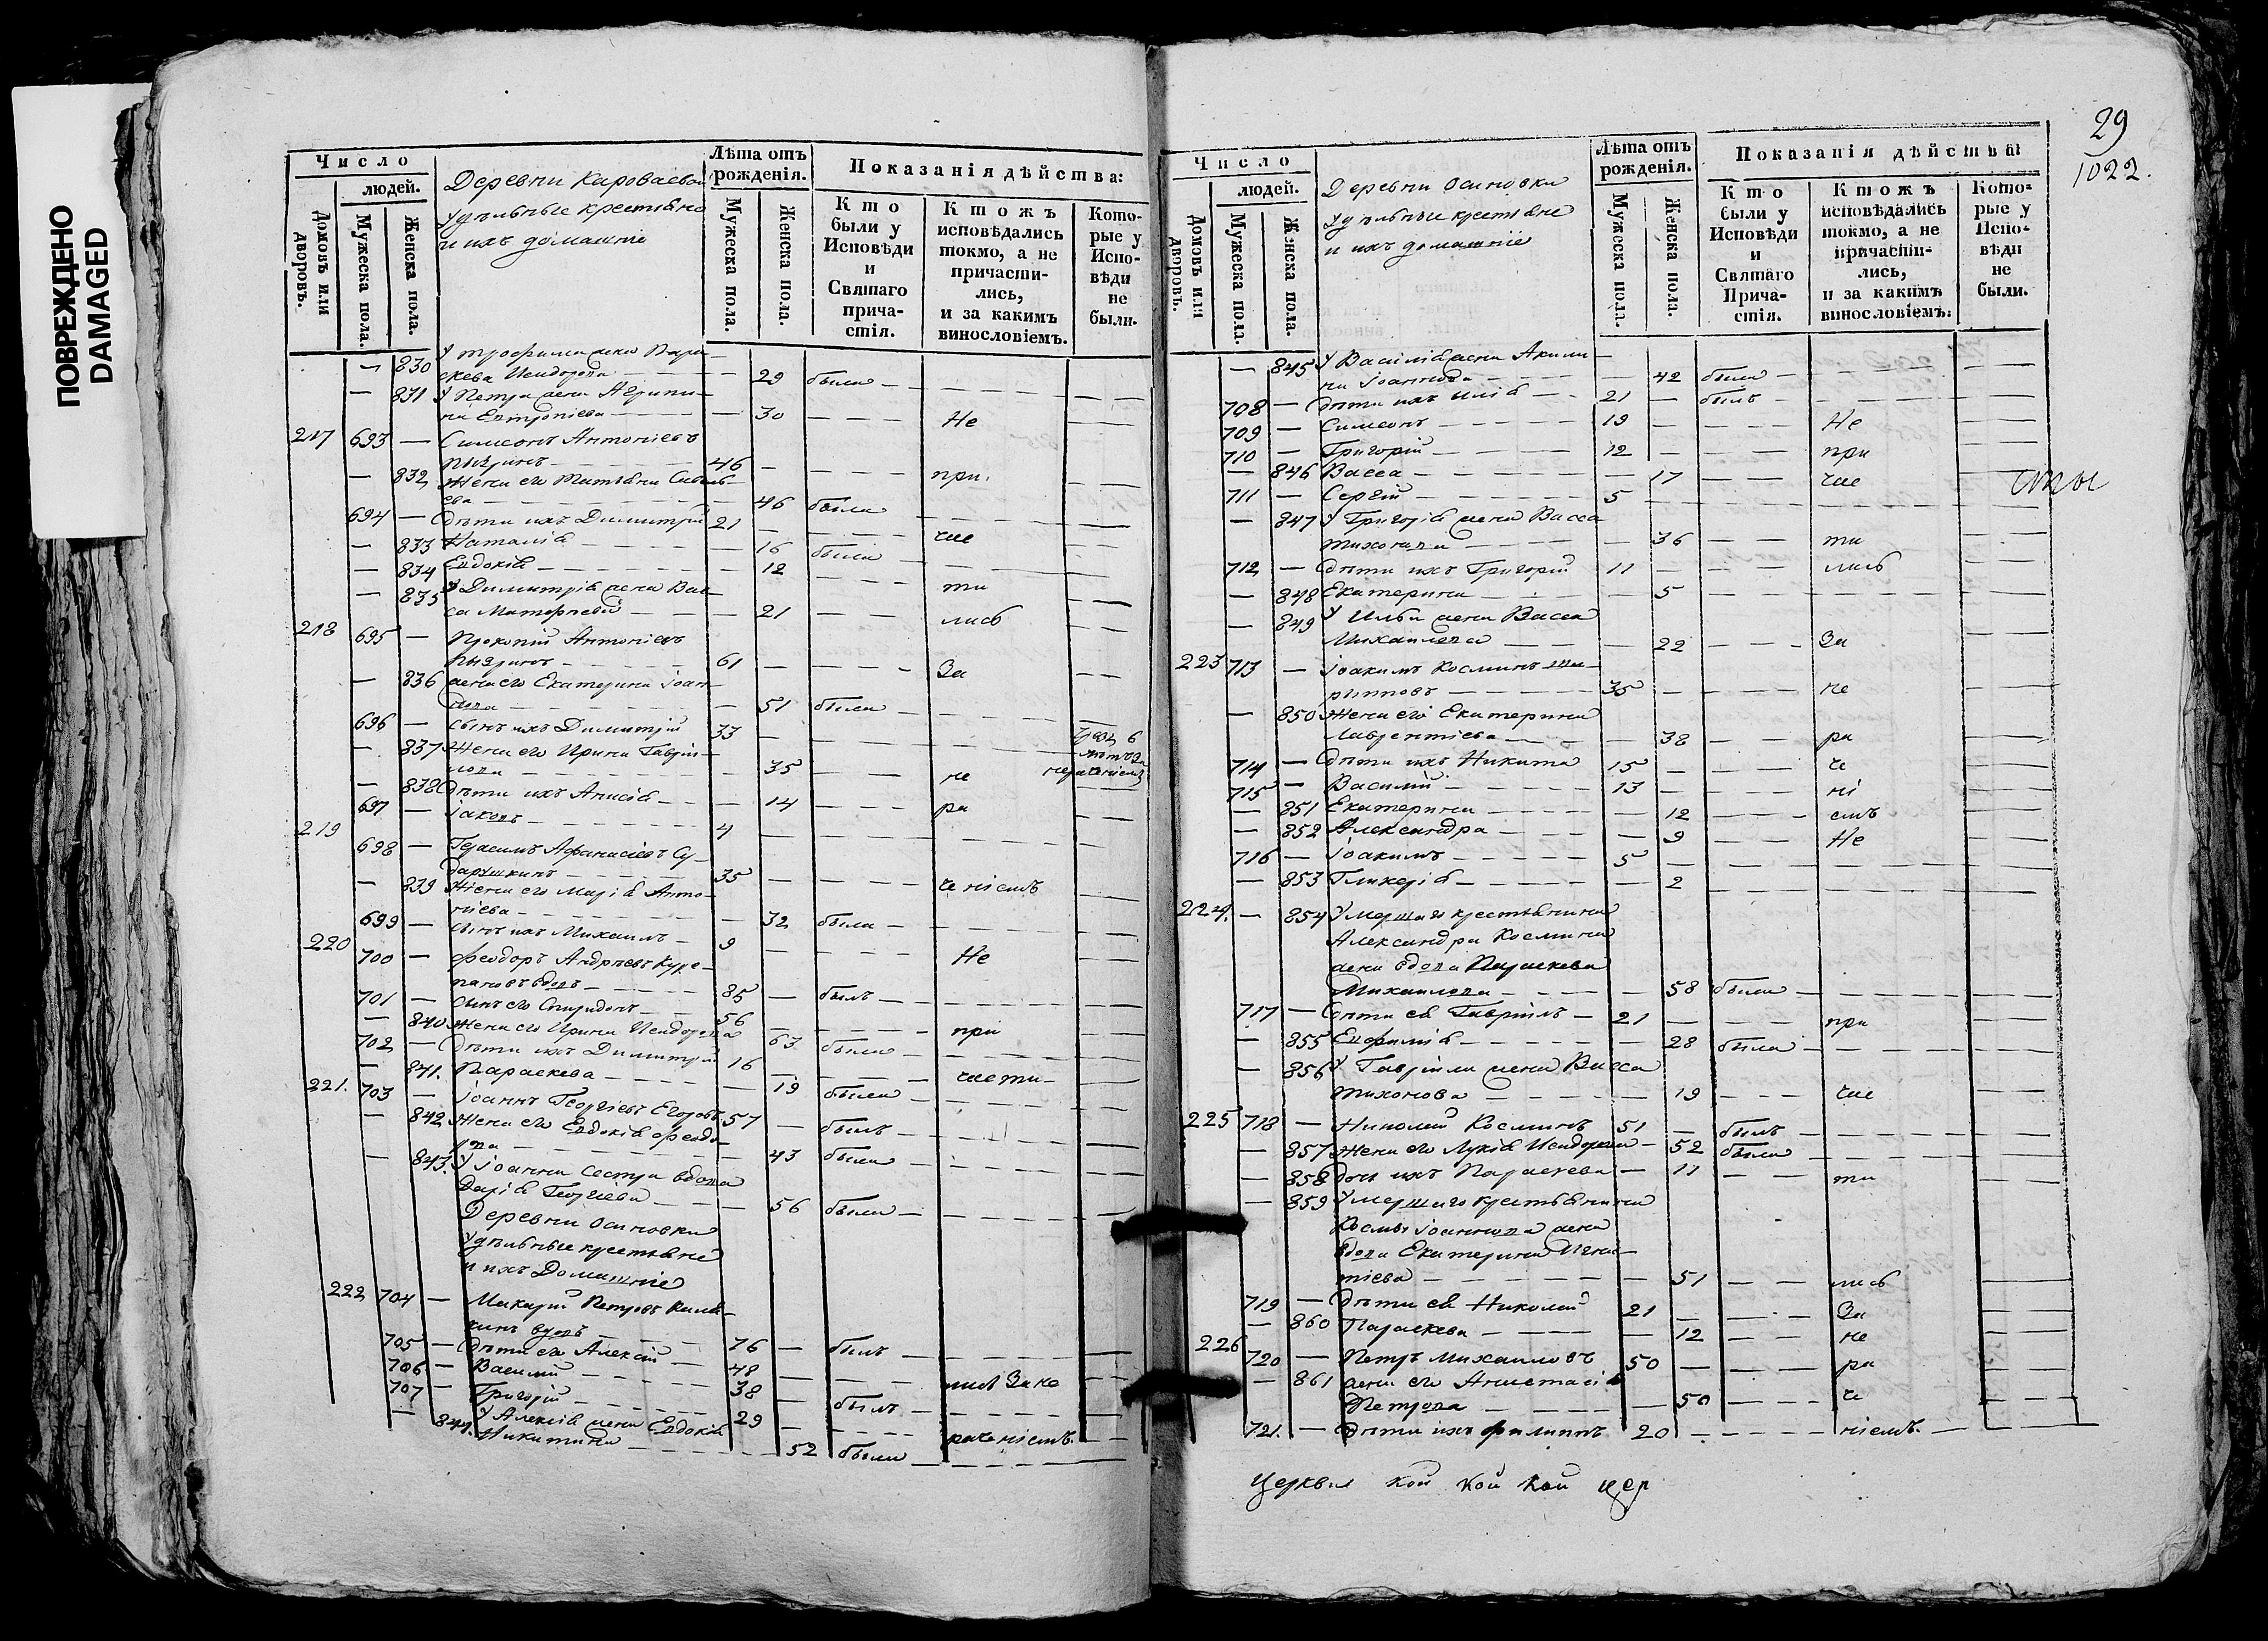 ПОВРЕЖДЕНО
DAMAGED
Число
людей.
Домовъ или дворовъ.
Мужеска пола.
Женска пола.
Деревни Кароваевой
Удѣльные крестьяне
и ихъ домашніе
Лѣта отъ рожденія.
Мужеска пола.
Женска пола.
Показанія дѣйства:
Кто были у Исповѣди и Святаго причастія.
Ктожъ исповѣдались токмо, а не причастились, и за какимъ винословіемъ.
Которые у Исповѣди не были.
— 830 У Трофима жена Пара-
скева Исидорова — 29 была
— 831 У Петра жена Агрипи-
на Евтропіева — 30 — Не
217 693 — Симеонъ Антоніевъ
46 —
— 832 Жена его Татіана Савель-
ева — 46 была
при.
694 — Дѣти ихъ Димитрій 21 — час
— 833 Наталія — 16 была
— 834 Евдокія — 12
— 835 У Димитрія жена Вас-
са — 21 — ти
218 695 — Прокопій Антоніевъ
лись
61 — За
— 836 жена его Екатерина Іоан-
нова — 51 была
696 — сынъ ихъ Димитрій 33
— 837 Жена его Ирина Гаврiи-
лова — 35 — не
— 838 Дѣти ихъ Анисія — 14 — ра
697 — Іаковъ — 4
219 698 — Герасимъ Афанасіевъ Су-
дарушкинъ — 35 — ченіемъ
— 839 Жена его Марія Анто-
ніева — 32 была
699 — сынъ ихъ Михаилъ — 9
220 700 — Феодоръ Андреевъ Куре-
пановъ вдовъ — 85 — былъ
Не
701 — сынъ его Спиридонъ — 56
— 840 Жена его Ирина Исидорова 63 была
при
702 — Дѣти ихъ Димитрій 16
— 841. Параскева — 19 была
части
221. 703 — Іоаннъ Георгіевъ Егоровъ 57 — былъ
— 842 Жена его Евдокія Феодо-
рова — 43 была
— 843. У Іоанна сестра вдова
Дарія Георгіева — 56 была
Деревни Осиновки
Удѣльные крестьяне
и ихъ Домашніе
222 704 — Макарій Петровъ
вдовъ — 76 — былъ
705 — Дѣти его Алексій — 48
706 — Василій — 38 — былъ
лись За не
707 — Григорій — 29
раченіемъ.
— 844. У Алексія жена Евдокія
Никитина — 52 была
29
1022.
Число
людей.
Домовъ или дворовъ.
Мужеска пола.
Женска пола.
Деревни Осиновки
удѣльные крестьяне
и ихъ домашніе
Лѣта отъ рожденія.
Мужеска пола.
Женска пола.
Показанія дѣйства
Кто были у Исповѣди и Святаго Причастія.
Ктожъ исповѣдались токмо, а не причастились, и за какимъ винословіемъ.
Которые у Исповѣди не были.
— 845 У Василія жена Акили-
на Іоаннова — 42 была
708 — Дѣти ихъ Илія — 21 — былъ
709 — Симеонъ — 19 — Не
710 — Григорій — 12 — при
— 846 Васса — 17 — час
711 — Сергій — 5
— 847 У Григорія жена Васса
Тихонова — 36 — ти
712 — Дѣти ихъ Григорій 11 — лись
— 848 Екатерина — 5
— 849 У Ильи жена Васса
Михаилова — 22 — За
223 713 — Іоакимъ Косминъ
35 — не
— 850 Жена его Екатерина
Лаврентіева — 38 — ра
714 — Дѣти ихъ Никита 15 — че
715 — Василій — 13 — ні
— 851 Екатерина — 12 — емъ
— 852 Александра — 9 — Не
716 — Іоакимъ — 5
— 853 Гликерія — 2
224. — 854 Умершаго крестьянина
Александра Космина
жена вдова Параскева
Михаилова — 58 была
717 — Дѣти ея Гавріилъ — 21 — при
— 855 Евфимія — 28 была
— 856 У Гавріила жена Васса
Тихонова — 19 — час
225 718 — Николай Косминъ 51 — былъ
— 857 Жена его Лукія Исидорова — 52 была
— 858 дочь ихъ Параскева — 11 — ти
— 859 Умершаго крестьянина
Космы Іоаннова жена
вдова Екатерина Игна-
тіева — 51 — лись
719 — Дѣти ея Николай 21 — За
— 860 Параскева — 12 — не
226 720 — Петръ Михаиловъ 50 — ра
— 861 жена его Анастасія
Петрова — 50 — че
721. — Дѣти ихъ Филиппъ 20 — ніемъ.
Церквы кой кой кой цер